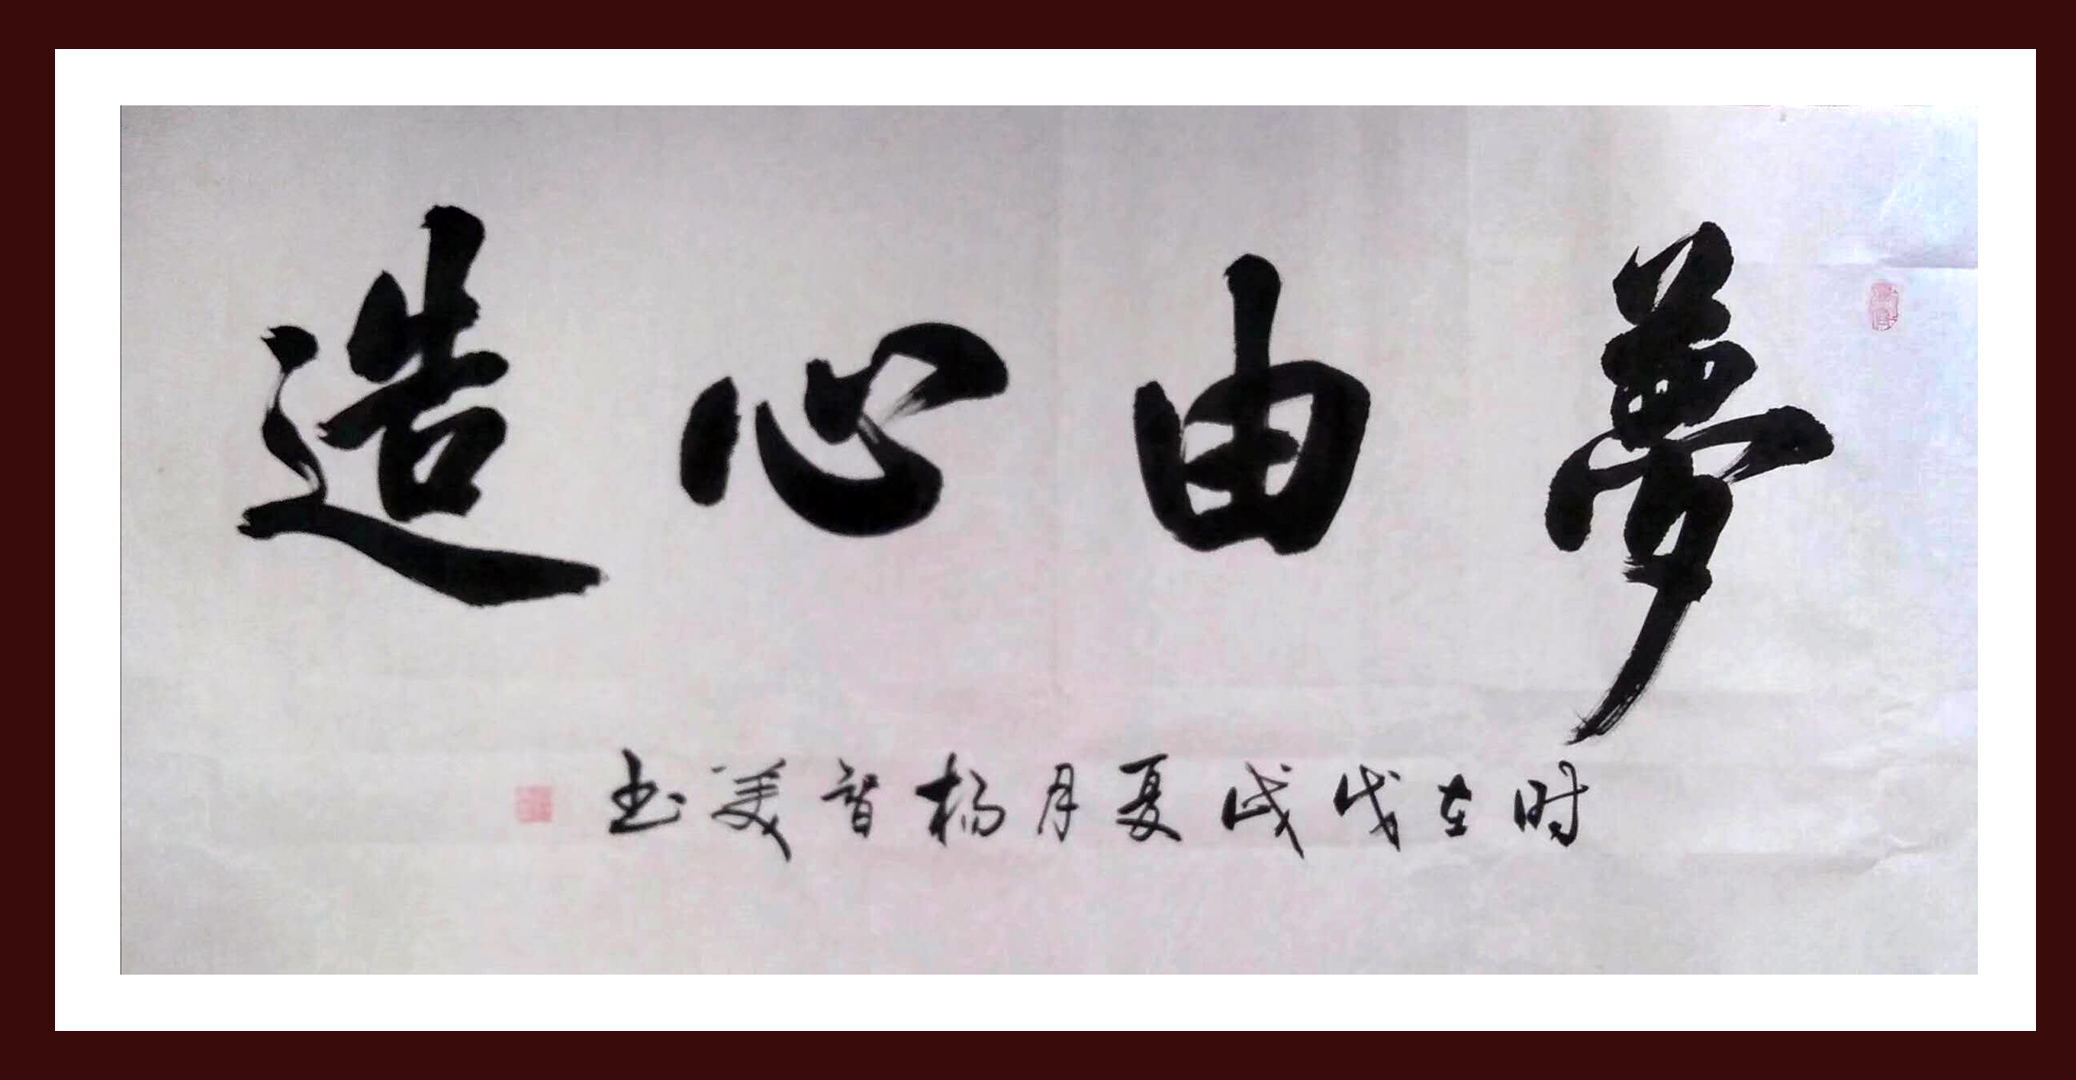 夢由心造
时在戊戌夏月杨智美书